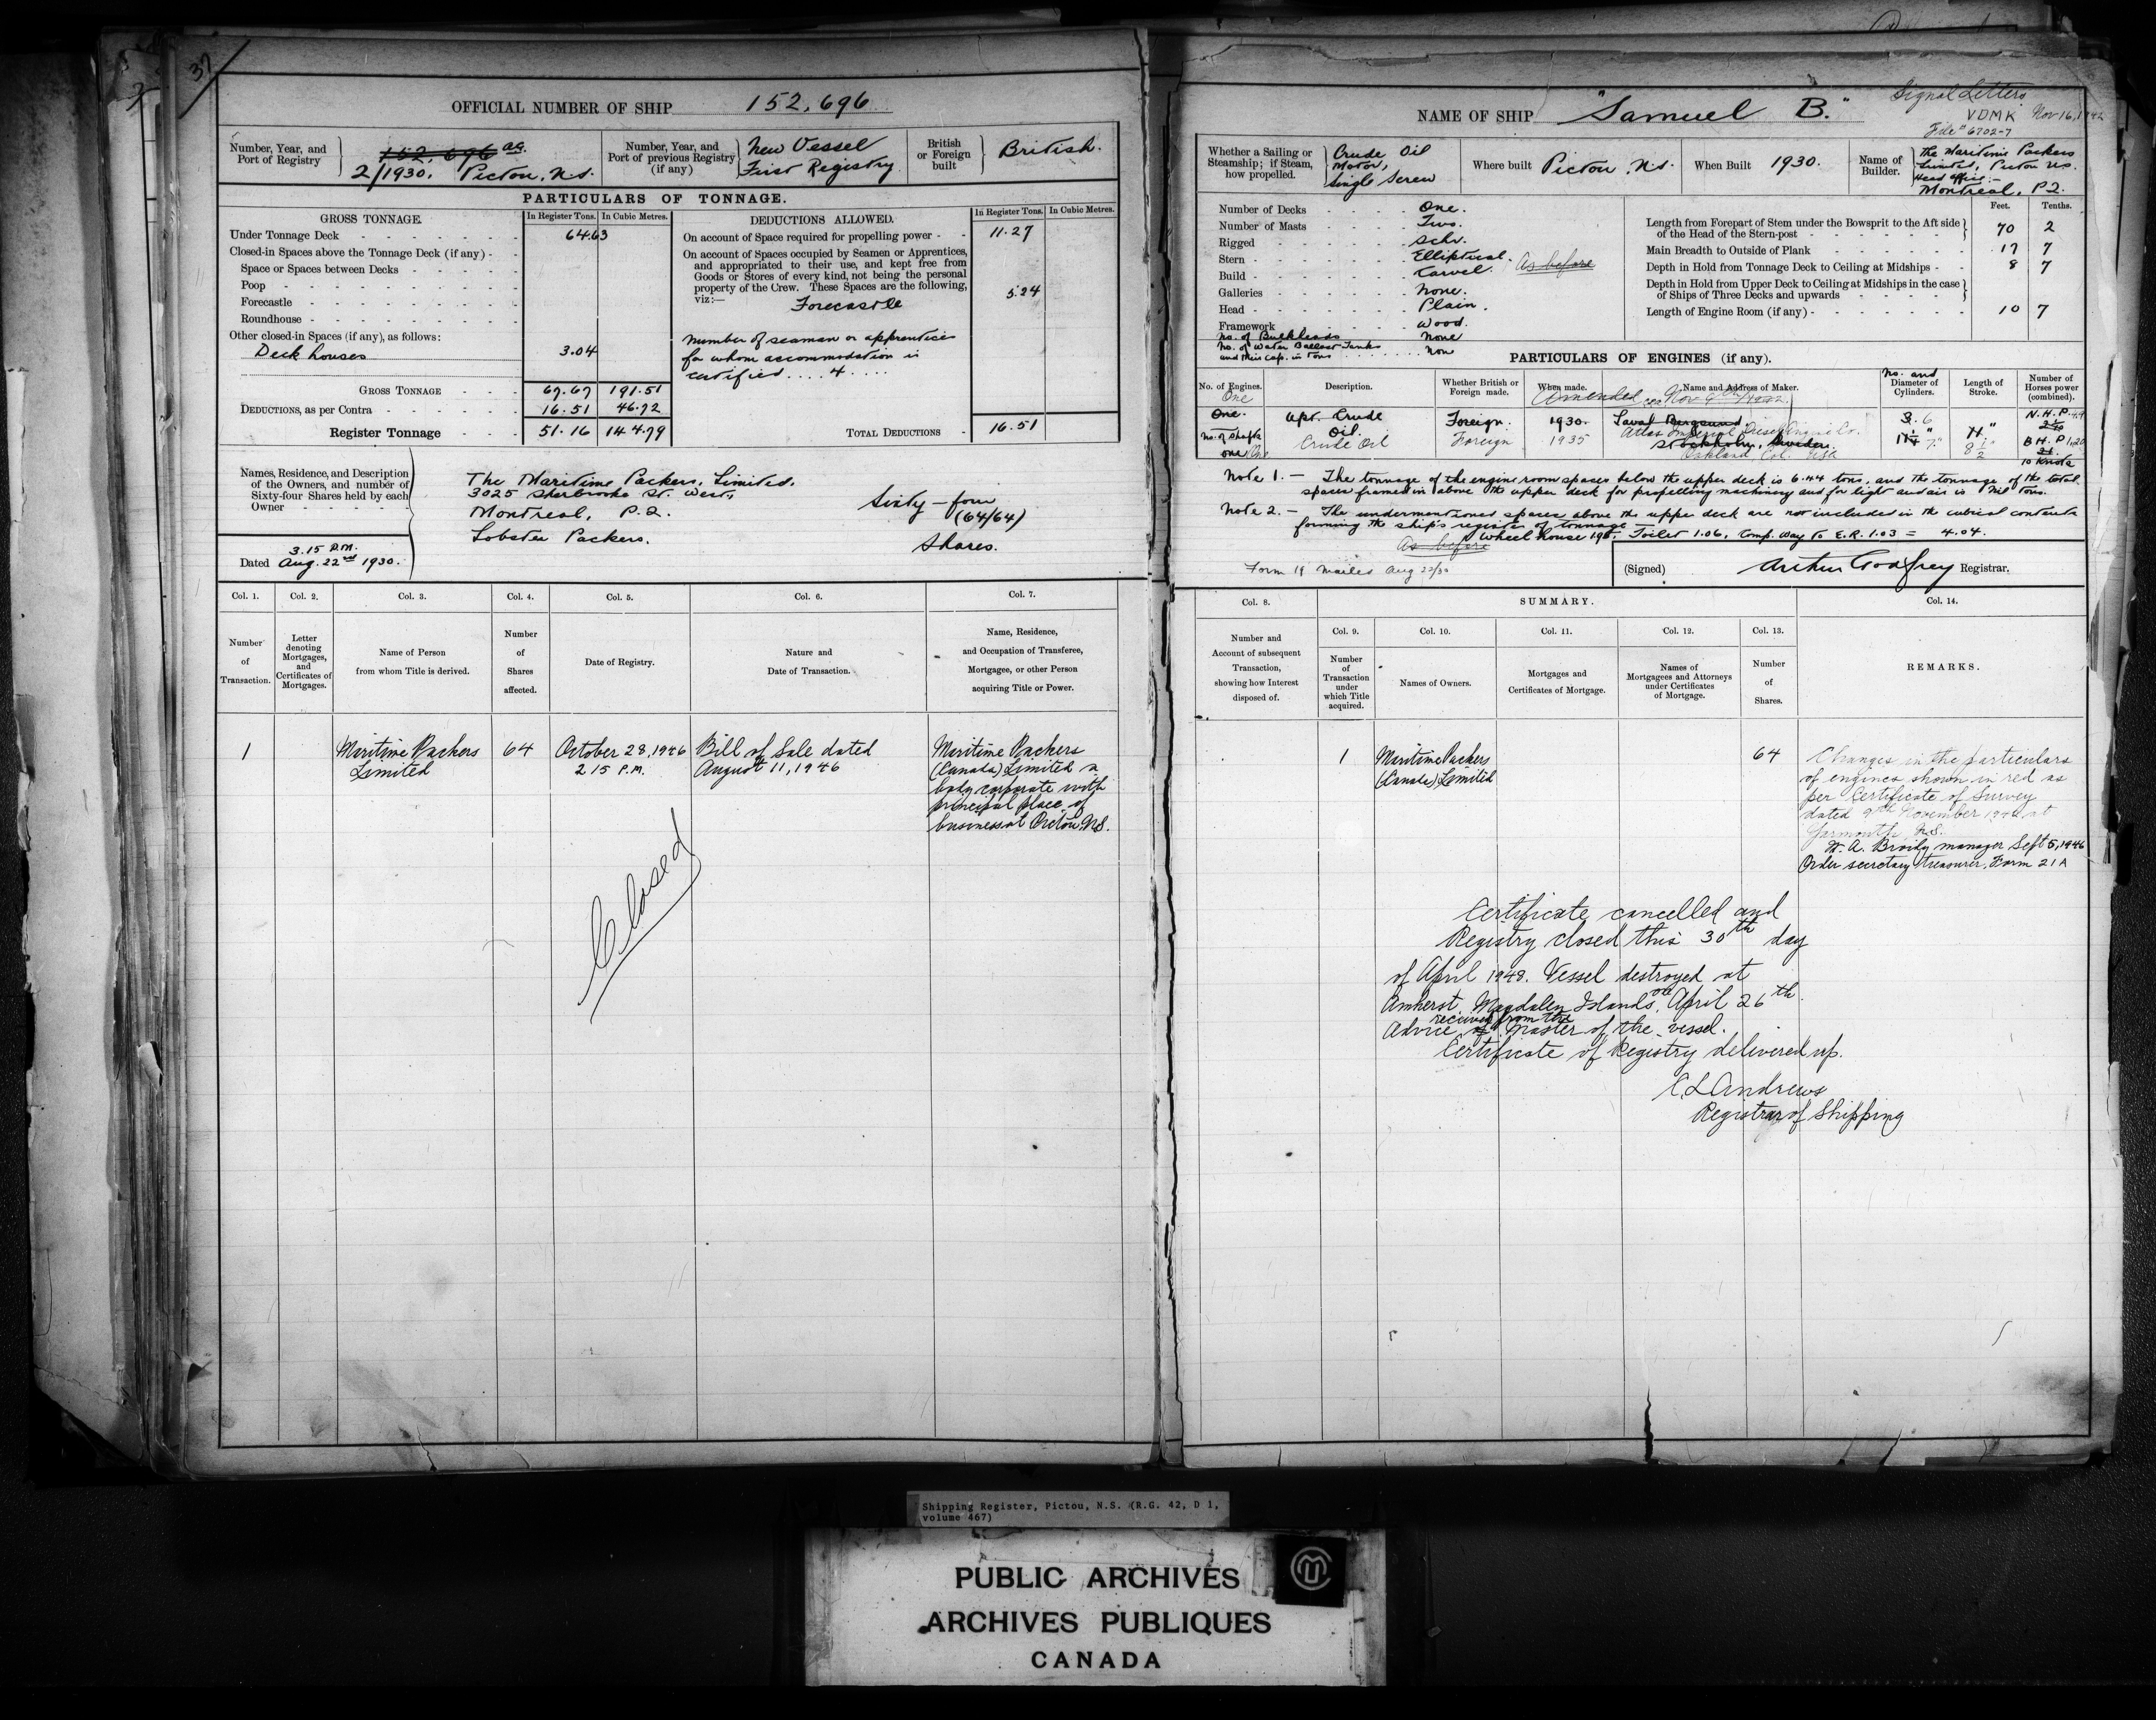 37
OFFICIAL NUMBER OF SHIP 152,696
Number, Year, and
Port of Registry
152,696 ag.
2/1930. Pictou, N.S.
Number, Year, and
Port of previous Registry
(if any)
New Vessel
First Registry
British
or Foreign
built
British.
PARTICULARS OF TONNAGE.
GROSS TONNAGE.
In Register Tons.
In Cubic Metres.
Under Tonnage Deck 64.63
Closed-in Spaces above the Tonnage Deck (if any)
Space or Spaces between Decks
Poop
Forecastle
Roundhouse
Other closed-in Spaces (if any), as follows:
Deck houses 3.04
GROSS TONNAGE 67.67 191.51
DEDUCTIONS, as per Contra 16.51 46.72
Register Tonnage 51.16 144.79
DEDUCTIONS ALLOWED.
In Register Tons.
In Cubic Metres.
On account of Space required for propelling power 11.27
On account of Spaces occupied by Seamen or Apprentices,
and appropriated to their use, and kept free from
Goods or Stores of every kind, not being the personal
property of the Crew. These Spaces are the following,
viz:—
Forecastle 5.24
Number of seaman or apprentices
for whom accommodation is
certified .... 4 ....
TOTAL DEDUCTIONS 16.51
Names, Residence, and Description
of the Owners, and number of
Sixty-four Shares held by each
Owner
The Maritime Packers, Limited.
3025 Sherbrooke St. West,
Montreal, P.Q.
Lobster Packers.
Sixty-four
(64/64)
Shares.
Dated 3.15 P.M.
Aug. 22nd 1930.
Col. 1.
Col. 2.
Col. 3.
Col. 4.
Col. 5.
Col. 6.
Col. 7.
Number
of
Transaction.
Letter
denoting
Mortgages,
and
Certificates of
Mortgages.
Name of Person
from whom Title is derived.
Number
of
Shares
affected.
Date of Registry.
Nature and
Date of Transaction.
Name, Residence,
and Occupation of Transferee,
Mortgagee, or other Person
acquiring Title or Power.
1
Maritime Packers
Limited
64
October 28, 1946
2 15 P.M.
Bill of Sale dated
August 11, 1946
Maritime Packers
(Canada) Limited a
body corporate with
principal place of
business at Pictou, N.S.
Closed
NAME OF SHIP "Samuel B."
Signal Letters
VDMK Nov 16, 1942
File # 6702-7
Whether a Sailing or
Steamship; if Steam,
how propelled.
Crude Oil
Motor,
Single Screw
Where built Pictou, N.S.
When Built 1930.
Name of
Builder.
The Maritime Packers
Limited, Pictou N.S.
Head office:—
Montreal, P.Q.
Number of Decks One.
Number of Masts Two.
Rigged Schr.
Stern Elliptical.
Build Carvel. As before
Galleries None.
Head Plain.
Framework Wood.
No. of Bulkheads None
No. of Water Ballast Tanks
and their cap. in tons Non
Feet.
Tenths.
Length from Forepart of Stem under the Bowsprit to the Aft side
of the Head of the Stern-post 70 2
Main Breadth to Outside of Plank 17 7
Depth in Hold from Tonnage Deck to Ceiling at Midships 8 7
Depth in Hold from Upper Deck to Ceiling at Midships in the case
of Ships of Three Decks and upwards
Length of Engine Room (if any) 10 7
PARTICULARS OF ENGINES (if any).
No. of Engines.
One
Description.
Whether British or
Foreign made.
When made.
Name and Address of Maker.
Amended
No. and
Diameter of
Cylinders.
Length of
Stroke.
Number of
Horses power
(combined).
One. Upr. Crude
Oil. Foreign. 1930.
Stockholm, Sweden.
No. of Shafts
one
Crude Oil Foreign 1935 Atlas Imperial Diesel Engine Co.
Oakland, Cal. USA
N.H.P.
B.H.P.
10 Knots
Note 1.— The tonnage of the engine room spaces below the upper deck is 6.44 tons, and the tonnage of the total
spaces framed in above the upper deck for propelling machinery and for light and air is Nil tons.
Note 2.— The undermentioned spaces above the upper deck are not included in the cubical contents
forming the ship's register of tonnage
As before Wheel house 1.95. Toilet 1.06, Comp. way to E.R. 1.03 = 4.04.
Form 19 mailed Aug 22/30
(Signed) Arthur Godfrey Registrar.
Col. 8.
SUMMARY.
Col. 14.
Col. 9.
Col. 10.
Col. 11.
Col. 12.
Col. 13.
Number and
Account of subsequent
Transaction,
showing how Interest
disposed of.
Number
of
Transaction
under
which Title
acquired.
Names of Owners.
Mortgages and
Certificates of Mortgage.
Names of
Mortgagees and Attorneys
under Certificates
of Mortgage.
Number
of
Shares.
REMARKS.
1
Maritime Packers
(Canada) Limited
64
Changes in the particulars
of engines shown in red as
per Certificate of Survey
dated 9th November 1942 at
Yarmouth, N.S.
manager Sept 5, 1946
Order secretary treasurer. Form 21A
Certificate cancelled and
Registry closed this 30th day
of April 1948. Vessel destroyed at
Amherst, Magdalen Islands, on April 26th.
Advice received from the Master of the vessel.
Certificate of Registry delivered up.
C L Andrews
Registrar of Shipping
Shipping Register, Pictou, N.S. (R.G. 42, D 1,
volume 467)
PUBLIC ARCHIVES
ARCHIVES PUBLIQUES
CANADA